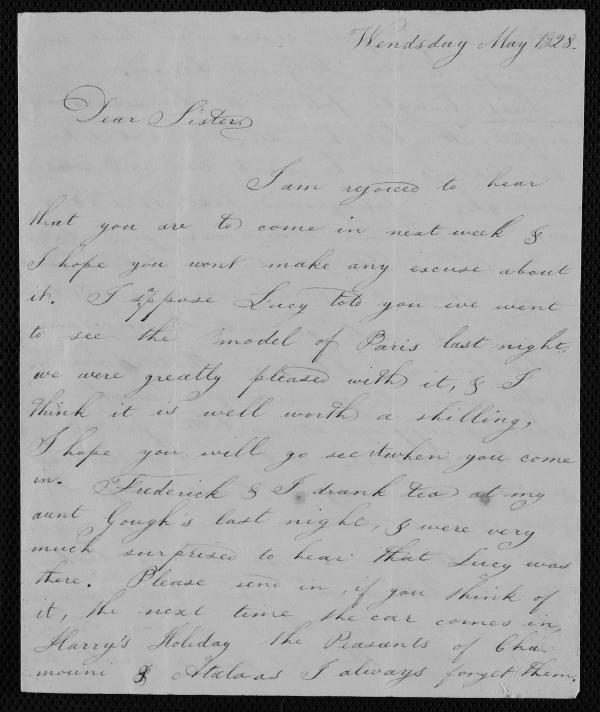 Wendsday May 1828.
Dear Sister,
I am rejoiced to hear
that you are to come in next week &
I hope you wont make any excuse about
it. I suppose Lucy told you we went
to see the model of Paris last night,
we were greatly pleased with it, & I
think it is well worth a shilling,
I hope you will go see it when you come
in. Frederick & I drank tea at my
aunt Gough's last night, & were very
much surprised to hear that Lucy was
there. Please send in, if you think of
it, the next time the car comes in,
Harry's Holiday the Peasants of Cha-
mouni & Atala as I always forget them.